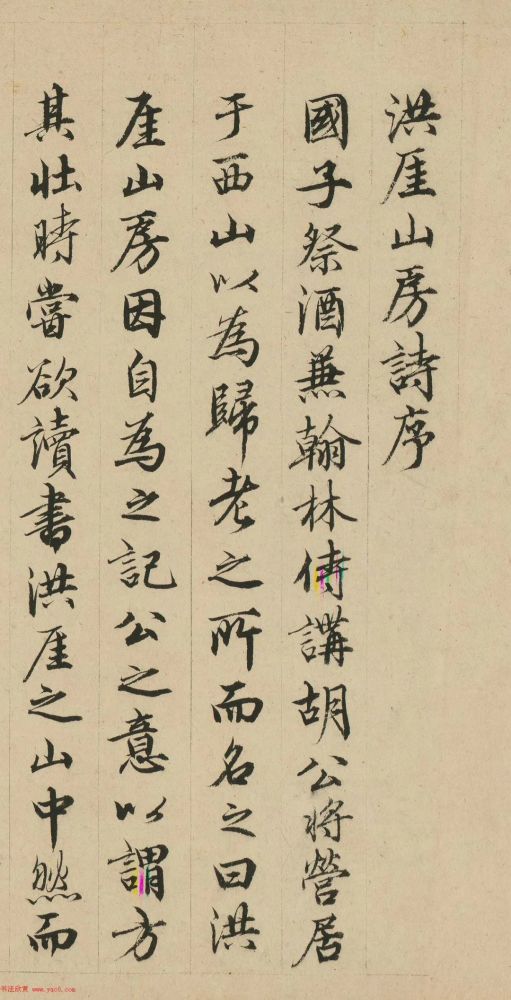 洪厓山房詩序
國子祭酒兼翰林侍講胡公將營居
于西山以為歸老之所而名之曰洪
厓山房因自為之記公之意以謂方
其壯時嘗欲讀書洪厓之山中然而
书法欣赏 www.yac8.com